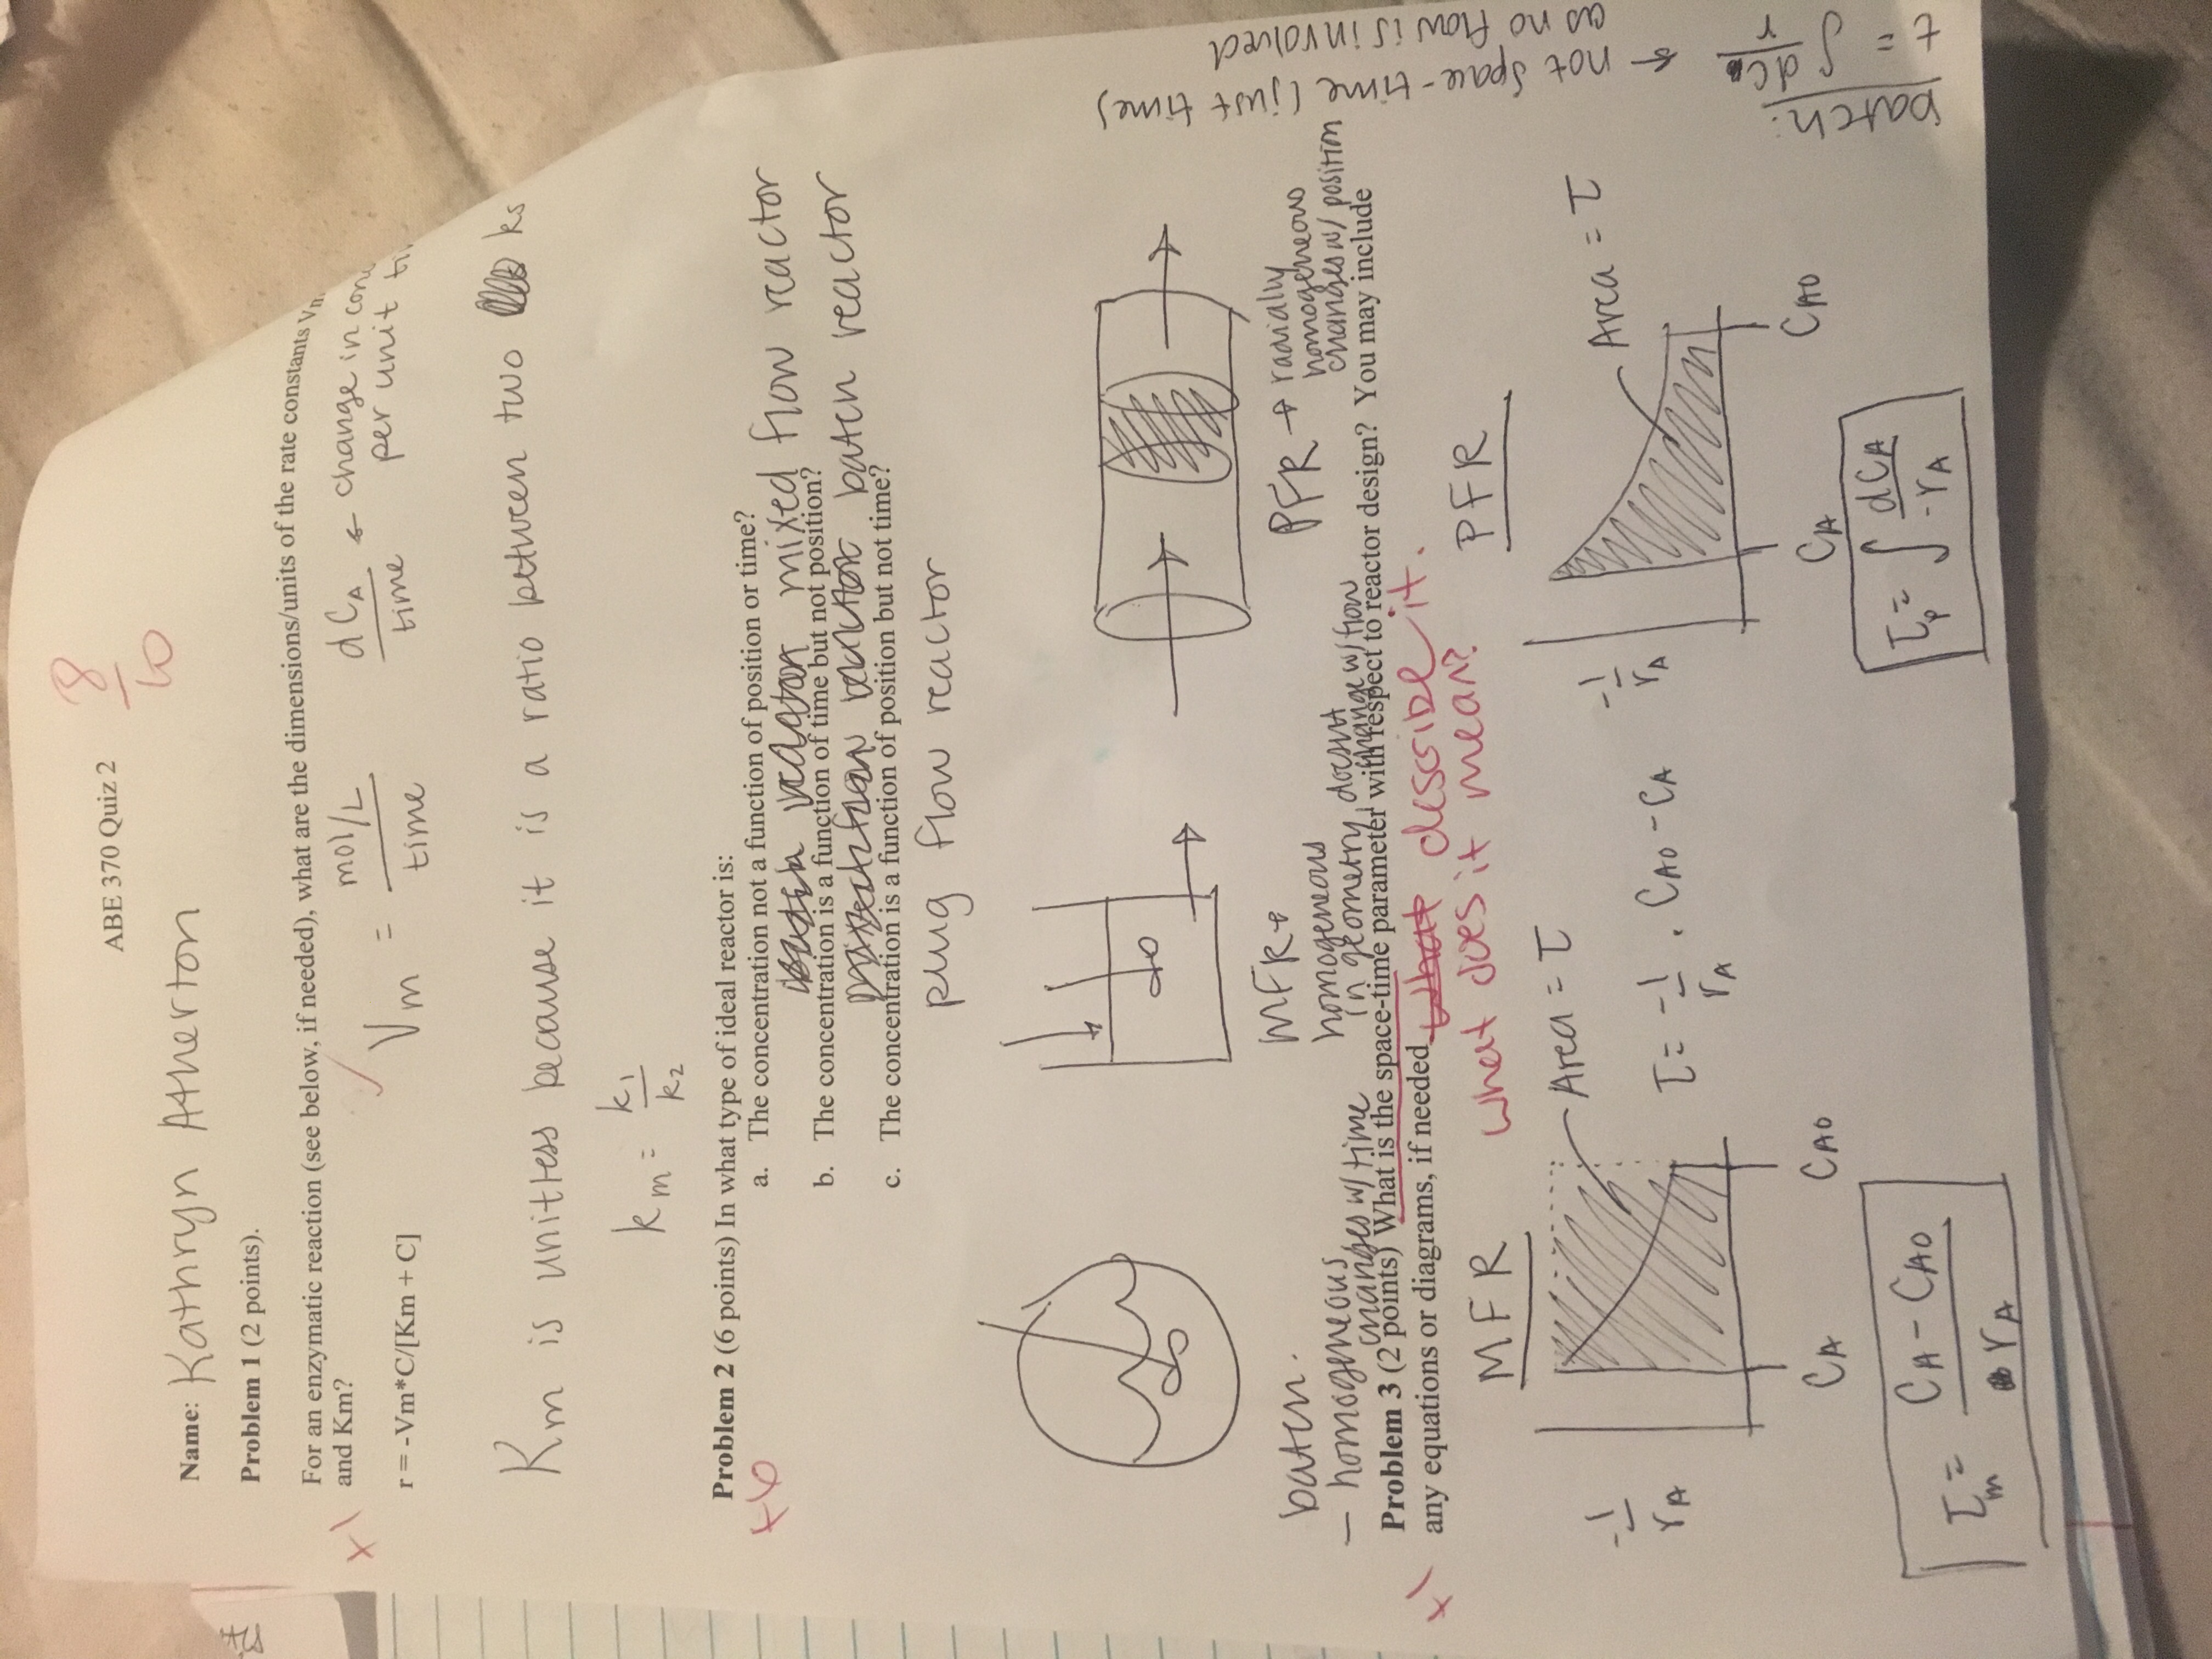 ABE 370 Quiz 2
8
10
Name: Kathryn Atherton
Problem 1 (2 points).
For an enzymatic reaction (see below, if needed), what are the dimensions/units of the rate constants Vm
and Km?
+1
✓ Vm = mol/L / time
dCA / time ← change in conc
per unit ti
r = -Vm*C/[Km + C]
Km is unitless because it is a ratio between two ks
km = k1 / k2
Problem 2 (6 points) In what type of ideal reactor is:
+6
a. The concentration not a function of position or time?
batch reactor mixed flow reactor
b. The concentration is a function of time but not position?
mixed flow reactor batch reactor
c. The concentration is a function of position but not time?
plug flow reactor
batch.
- homogeneous,
changes w/ time
MFR→
homogeneous
in geometry, doesnt
change w/ flow
PFR → radially
homogeneous
changes w/ position
Problem 3 (2 points) What is the space-time parameter with respect to reactor design? You may include
any equations or diagrams, if needed
+1
What describe it.
What does it mean?
MFR
-1/rA
Area = τ
τ = -1/rA · CA0 - CA
CA
CA0
τm = CA - CA0 / rA
PFR
-1/rA
Area = τ
CA
CA0
τp = ∫ dCA / -rA
batch:
t = ∫ dC / r ← not space-time (just time)
as no flow is involved